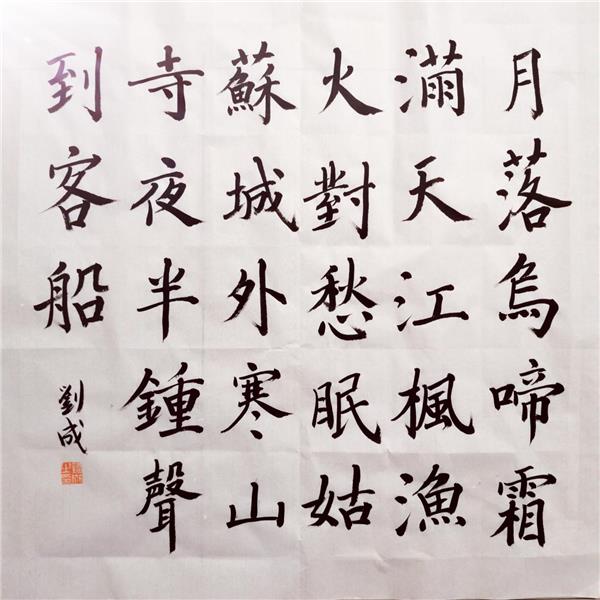 月落烏啼霜
滿天江楓漁
火對愁眠姑
蘇城外寒山
寺夜半鍾聲
到客船
劉成